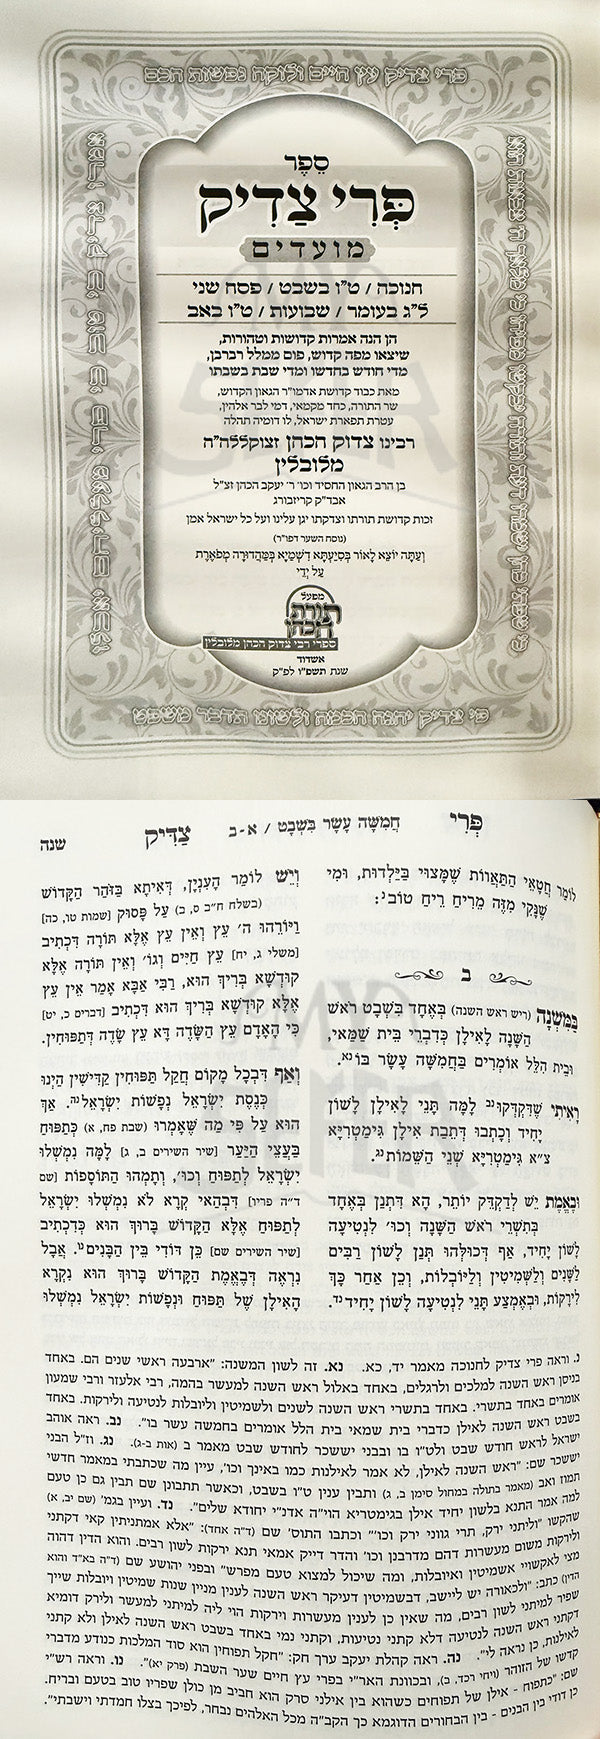 פרי צדיק עץ חיים ולוקח נפשות חכם
ספר
פְּרִי צַדִּיק
מועדים
חנוכה / ט"ו בשבט / פסח שני
ל"ג בעומר / שבועות / ט"ו באב
הן הנה אמרות קדושות וטהורות,
שיצאו מפה קדוש, פום ממלל רברבן,
מדי חודש בחדשו ומדי שבת בשבתו
מאת כבוד קדושת אדמו"ר הגאון הקדוש,
שר התורה, כחד מקמאי, דמי לבר אלהין,
עטרת תפארת ישראל, לו דומיה תהלה
רבינו צדוק הכהן זצוקללה"ה
מלובלין
בן הרב הגאון החסיד וכו' ר' יעקב הכהן זצ"ל
אבד"ק קריזבורג
זכות קדושת תורתו וצדקתו יגן עלינו ועל כל ישראל אמן
(נוסח השער דפו"ר)
וְעַתָּה יוֹצֵא לָאוֹר בְּסִיַּעְתָּא דִּשְׁמַיָּא בְּמַהֲדוּרָה מְפֹאֶרֶת
עַל יְדֵי
מפעל
תורת
הכהן
ספרי רבי צדוק הכהן מלובלין
אשדוד
שנת תשפ"ו לפ"ק
פי צדיק יהגה חכמה ולשונו תדבר משפט
פְּרִי חֲמִשָּׁה עָשָׂר בִּשְׁבָט / א-ב צַדִּיק שנה
לוֹמַר חֲטָאֵי הַתַּאֲווֹת שֶׁמָּצוּי בַּיַּלְדוּת, וּמִי
שֶׁנָּקִי מִזֶּה מֵרִיחַ רֵיחַ טוֹבנ:
ב
בַּמִּשְׁנָה (ריש ראש השנה) בְּאֶחָד בִּשְׁבָט רֹאשׁ
הַשָּׁנָה לָאִילָן כְּדִבְרֵי בֵּית שַׁמַּאי,
וּבֵית הִלֵּל אוֹמְרִים בַּחֲמִשָּׁה עָשָׂר בּוֹנא.
רָאִיתִי שֶׁדִּקְדְּקוּנב לָמָּה תָּנֵי לָאִילָן לְשׁוֹן
יָחִיד וְכָתְבוּ דְּתֵבַת אִילָן גִּימַטְרִיָּא
צ"א גִּימַטְרִיָּא שְׁנֵי הַשֵּׁמוֹתנג.
וּבֶאֱמֶת יֵשׁ לְדַקְדֵּק יוֹתֵר, הָא דִּתְנַן בְּאֶחָד
בְּתִשְׁרֵי רֹאשׁ הַשָּׁנָה וְכוּ' לַנְּטִיעָה
לְשׁוֹן יָחִיד, אַף דְּכוּלְּהוּ תְּנַן לְשׁוֹן רַבִּים
לַשָּׁנִים וְלַשְּׁמִיטִין וְלַיּוֹבְלוֹת, וְכֵן אַחַר כָּךְ
לִירָקוֹת, וּבְאֶמְצַע תָּנֵי לִנְטִיעָה לְשׁוֹן יָחִידנד.
וְיֵשׁ לוֹמַר הָעִנְיָן, דְּאִיתָא בַּזֹּהַר הַקָּדוֹשׁ
(בשלח ח"ב ס, ב) עַל פָּסוּק [שמות טו, כה]
וַיּוֹרֵהוּ ה' עֵץ וְאֵין עֵץ אֶלָּא תּוֹרָה דִּכְתִיב
[משלי ג, יח] עֵץ חַיִּים וְגוֹ' וְאֵין תּוֹרָה אֶלָּא
קוּדְשָׁא בְּרִיךְ הוּא, רַבִּי אַבָּא אָמַר אֵין עֵץ
אֶלָּא קוּדְשָׁא בְּרִיךְ הוּא דִּכְתִיב [דברים כ, יט]
כִּי הָאָדָם עֵץ הַשָּׂדֶה דָּא עֵץ שָׂדֶה דְּתַפּוּחִין.
וְאַף דִּבְכָל מָקוֹם חֲקַל תַּפּוּחִין קַדִּישִׁין הַיְנוּ
כְּנֶסֶת יִשְׂרָאֵל נַפְשׁוֹת יִשְׂרָאֵלנה. אַךְ
הוּא עַל פִּי מַה שֶּׁאָמְרוּ (שבת פח, א) כְּתַפּוּחַ
בַּעֲצֵי הַיַּעַר [שיר השירים ב, ג] לָמָּה נִמְשְׁלוּ
יִשְׂרָאֵל לְתַפּוּחַ וְכוּ', וְתָמְהוּ הַתּוֹסָפוֹת [שם
ד"ה פריו] דִּבְהַאי קְרָא לֹא נִמְשְׁלוּ יִשְׂרָאֵל
לְתַפּוּחַ אֶלָּא הַקָּדוֹשׁ בָּרוּךְ הוּא כְּדִכְתִיב
[שיר השירים שם] כֵּן דּוֹדִי בֵּין הַבָּנִיםנו. אֲבָל
נִרְאֶה דְּבֶאֱמֶת הַקָּדוֹשׁ בָּרוּךְ הוּא נִקְרָא
הָאִילָן שֶׁל תַּפּוּחַ וְנַפְשׁוֹת יִשְׂרָאֵל נִמְשְׁלוּ
נ. וראה פרי צדיק לחנוכה מאמר יד, כא. נא. זה לשון המשנה: "ארבעה ראשי שנים הם. באחד
בניסן ראש השנה למלכים ולרגלים, באחד באלול ראש השנה למעשר בהמה, רבי אלעזר ורבי שמעון
אומרים באחד בתשרי. באחד בתשרי ראש השנה לשנים ולשמיטין וליובלות לנטיעה ולירקות. באחד
בשבט ראש השנה לאילן כדברי בית שמאי בית הלל אומרים בחמשה עשר בו". נב. ראה אוהב
ישראל לראש חודש שבט ולט"ו בו ובבני יששכר לחודש שבט מאמר ב (אות ב-ג). נג. וז"ל הבני
יששכר שם: "ראש השנה לאילן, לא אמר לאילנות כמו באינך וכו', עיין מה שכתבתי במאמר חדשי
תמוז ואב (מאמר בתולה במחול סימן ב, ג) ותבין ענין ט"ו בשבט, וכאשר תתבונן שם תבין גם כן טעם
למה אמר התנא בלשון יחיד אילן בגימטריא הוי"ה אדנ"י יחודא שלים". נד. ועיין בגמ' (שם יב, א)
שהקשו "וליתני ירק, תרי גווני ירק וכו'" וכתבו התוס' שם (ד"ה אחד): "אלא אמתניתין קאי דקתני
ולירקות משום מעשרות דהם מדרבנן וכו' והדר דייק אמאי תנא ירקות לשון רבים. והוא הדין דהוה
מצי לאקשויי אשמיטין ואיובלות, ומה שיכול למצוא טעם מפרש" ובפני יהושע שם (ד"ה בא"ד והוא
הדין) כתב: "ולכאורה יש ליישב, דבשמיטין דעיקר ראש השנה לענין מניין שנות שמיטין ויובלות שייך
שפיר למיתני לשון רבים, מה שאין כן לענין מעשרות וירקות הוי ליה למיתני למעשר ולירק דומיא
דקתני ראש השנה לנטיעה דלא קתני נטיעות, וקתני נמי באחד בשבט ראש השנה לאילן ולא קתני
לאילנות, כן נראה לי". נה. ראה קהלת יעקב ערך חק: "חקל תפוחין הוא סוד המלכות כנודע מדברי
קדשו של הזוהר (ויחי רכד, ב), ובכוונת האר"י בפרי עץ חיים שער השבת (פרק יא)". נו. וראה רש"י
שם: "כתפוח - אילן של תפוחים כשהוא בין אילני סרק הוא חביב מן כולן שפריו טוב בטעם ובריח.
כן דודי בין הבנים - בין הבחורים הדוגמא כך הקב"ה מכל האלהים נבחר, לפיכך בצלו חמדתי וישבתי".